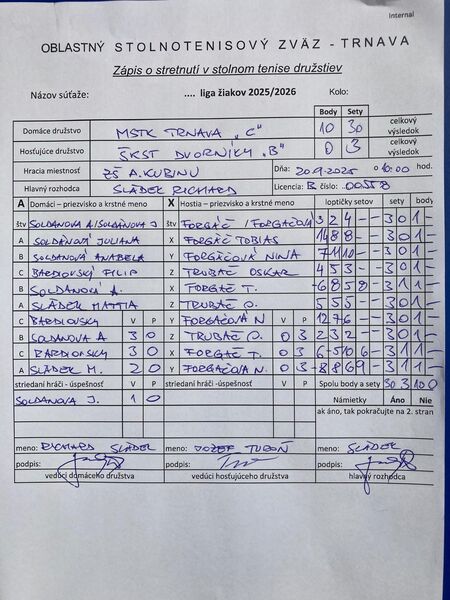 Internal
OBLASTNÝ STOLNOTENISOVÝ ZVÄZ - TRNAVA
Zápis o stretnutí v stolnom tenise družstiev
Názov súťaže: .... liga žiakov 2025/2026 Kolo:
Body Sety
Domáce družstvo MSTK TRNAVA „C" 10 30 celkový výsledok
Hosťujúce družstvo ŠKST DVORNÍKY „B" 0 3 celkový výsledok
Hracia miestnosť ZŠ A.KUBINU Dňa: 20.9.2025 o 10:00 hod.
Hlavný rozhodca SLÁDEK RICHARD Licencia: B číslo: 00558
A Domáci – priezvisko a krstné meno X Hostia – priezvisko a krstné meno loptičky setov sety body
štv SOLDÁNOVÁ A/SOLDÁNOVÁ J štv FORGÁČ / FORGÁČOVÁ 3 2 4 - - 3 0 1 -
A SOLDÁNOVÁ JULIANA X FORGÁČ TOBIAS 14 8 8 - - 3 0 1 -
B SOLDÁNOVÁ ANABELA Y FORGÁČOVÁ NINA 7 11 10 - - 3 0 1 -
C BARDIOVSKÝ FILIP Z TRUBAČ OSKAR 4 5 3 - - 3 0 1 -
B SOLDANOVÁ A. X FORGÁČ T. -6 8 5 8 - 3 1 1 -
A SLÁDEK MATTIA Z TRUBAČ O. 5 5 5 - - 3 0 1 -
C BARDIOVSKY V P Y FORGÁČOVÁ N V P 12 7 6 - - 3 0 1 -
B SOLDANOVA A 3 0 Z TRUBAČ O. 0 3 2 3 2 - - 3 0 1 -
C BARDIOVSKY 3 0 X FORGÁČ T. 0 3 6 -5 10 6 - 3 1 1 -
A SLÁDEK M. 2 0 Y FORGÁČOVÁ N. 0 3 -8 8 6 9 - 3 1 1 -
striedaní hráči -úspešnosť V P striedaní hráči -úspešnosť V P Spolu body a sety 30 3 10 0
SOLDANOVA J. 1 0 Námietky Áno Nie
ak áno, tak pokračujte na 2. stran
meno: RICHARD SLÁDEK meno: JOZEF TUROŇ meno: SLÁDEK
podpis: podpis: podpis:
vedúci domáceho družstva vedúci hosťujúceho družstva hlavný rozhodca